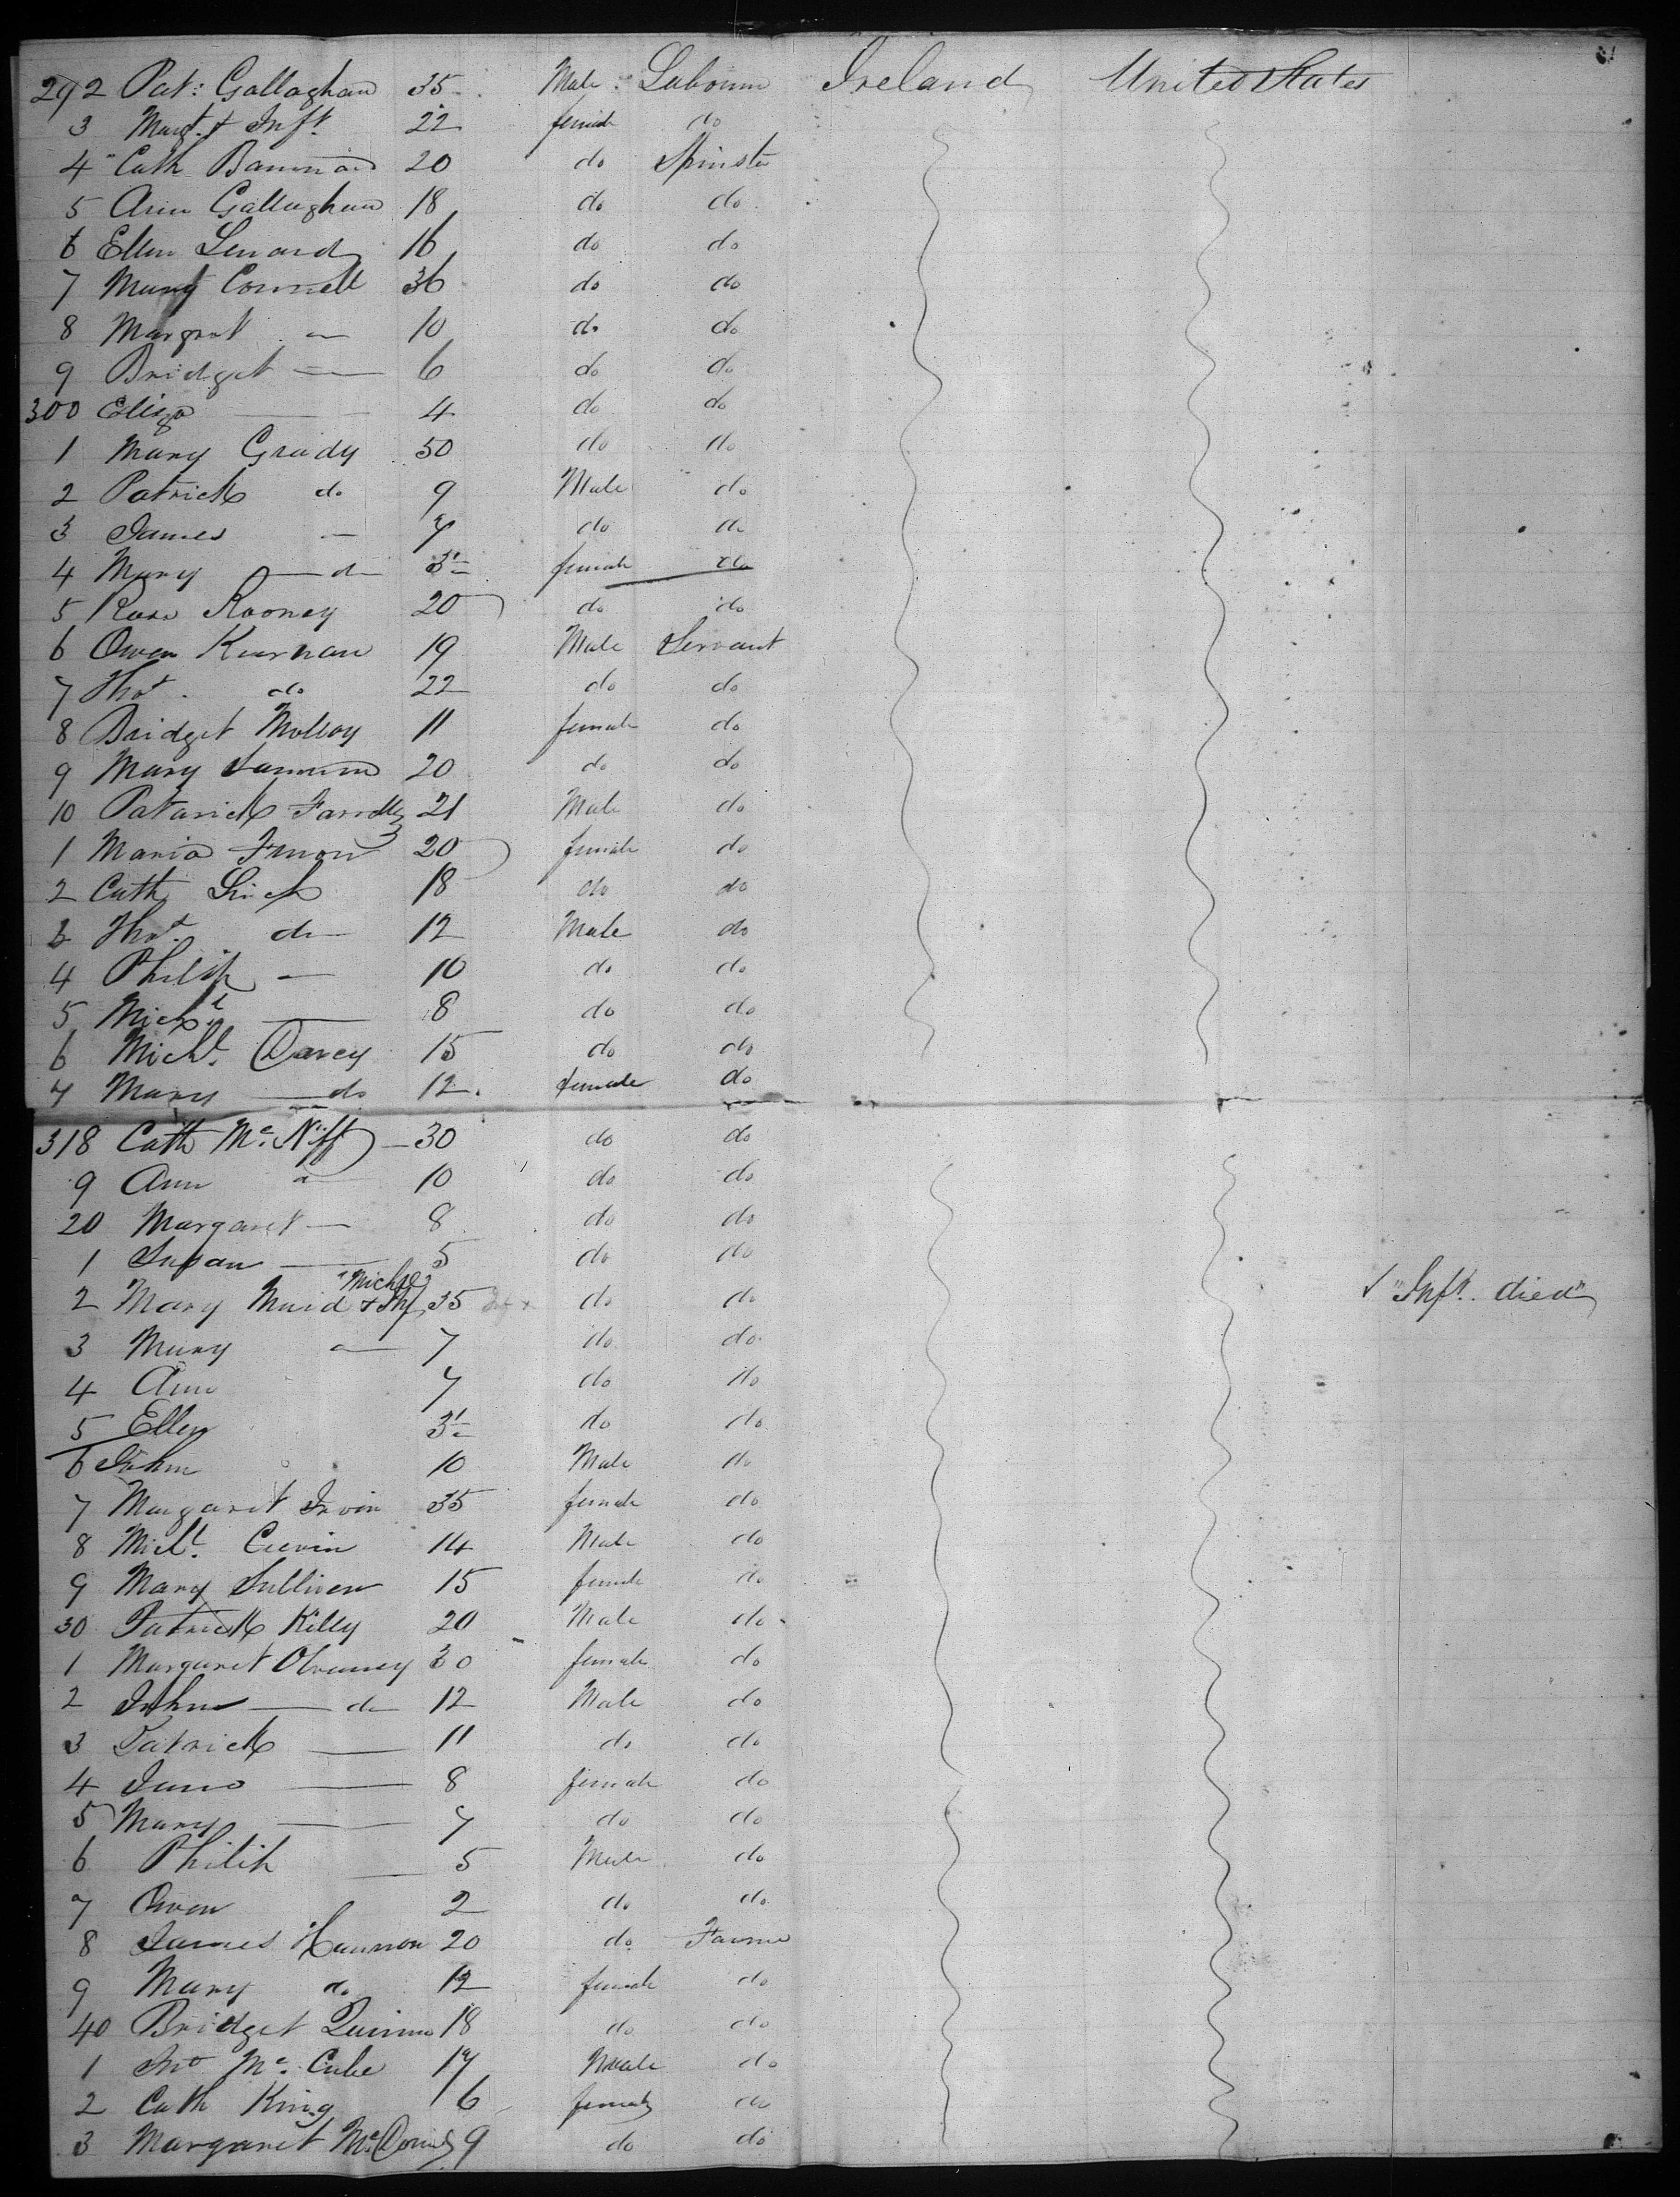 292 Pat: Gallaghan 35 Male Labourer Ireland United States
3 Margt. & Inft. 22 female do
4 Cath 20 do Spinster
5 Ann Gallaghan 18 do do
6 Ellen Lenard 16 do do
7 Mary Connell 36 do do
8 Margrat — 10 do do
9 Bridget — 6 do do
300 Eliza — 4 do do
1 Mary Grady 50 do do
2 Patrick do 9 Male do
3 James — 7 do do
4 Mary — do 3 female do
5 Rose Rooney 20 do do
6 Owen Kiernan 19 Male Servant
7 Thos. do 22 do do
8 Bridget Molloy 11 female do
9 Mary 20 do do
10 Patarick Farrelly 21 Male do
1 Maria 20 female do
2 Cath 18 do do
3 Thos. do 12 Male do
4 Philip — 10 do do
5 Michl. — 8 do do
6 Michl. Darcy 15 do do
7 Mary — do 12. female do
318 Cath Mc. Niff — 30 do do
9 Ann — 10 do do
20 Margaret — 8 do do
1 Susan — 5 do do
Michael
2 Mary Muid & Inf 35 do do Inft. died
3 Mary — 7 do do
4 Ann 7 do do
5 Ellen 3 do do
6 John 10 Male do
7 Margaret Irvin 35 female do
8 Michl. 14 Male do
9 Mary Sulliven 15 female do
30 Patrick Killy 20 Male do
1 Margaret 30 female do
2 John — do 12 Male do
3 Patrick — 11 do do
4 Jane — 8 female do
5 Mary — 7 do do
6 Philip — 5 Male do
7 Owen 2 do do
8 James Hannon 20 do Farmer
9 Mary do 12 female do
40 Bridget Quinn 18 do do
1 Jno Mc. Cabe 17 Male do
2 Cath King 16 female do
3 Margaret Mc. 9 do do